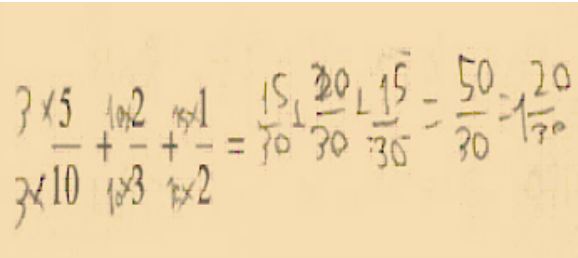 3×5/3×10 + 10×2/10×3 + 15×1/15×2 = 15/30 + 20/30 + 15/30 = 50/30 = 1 20/30